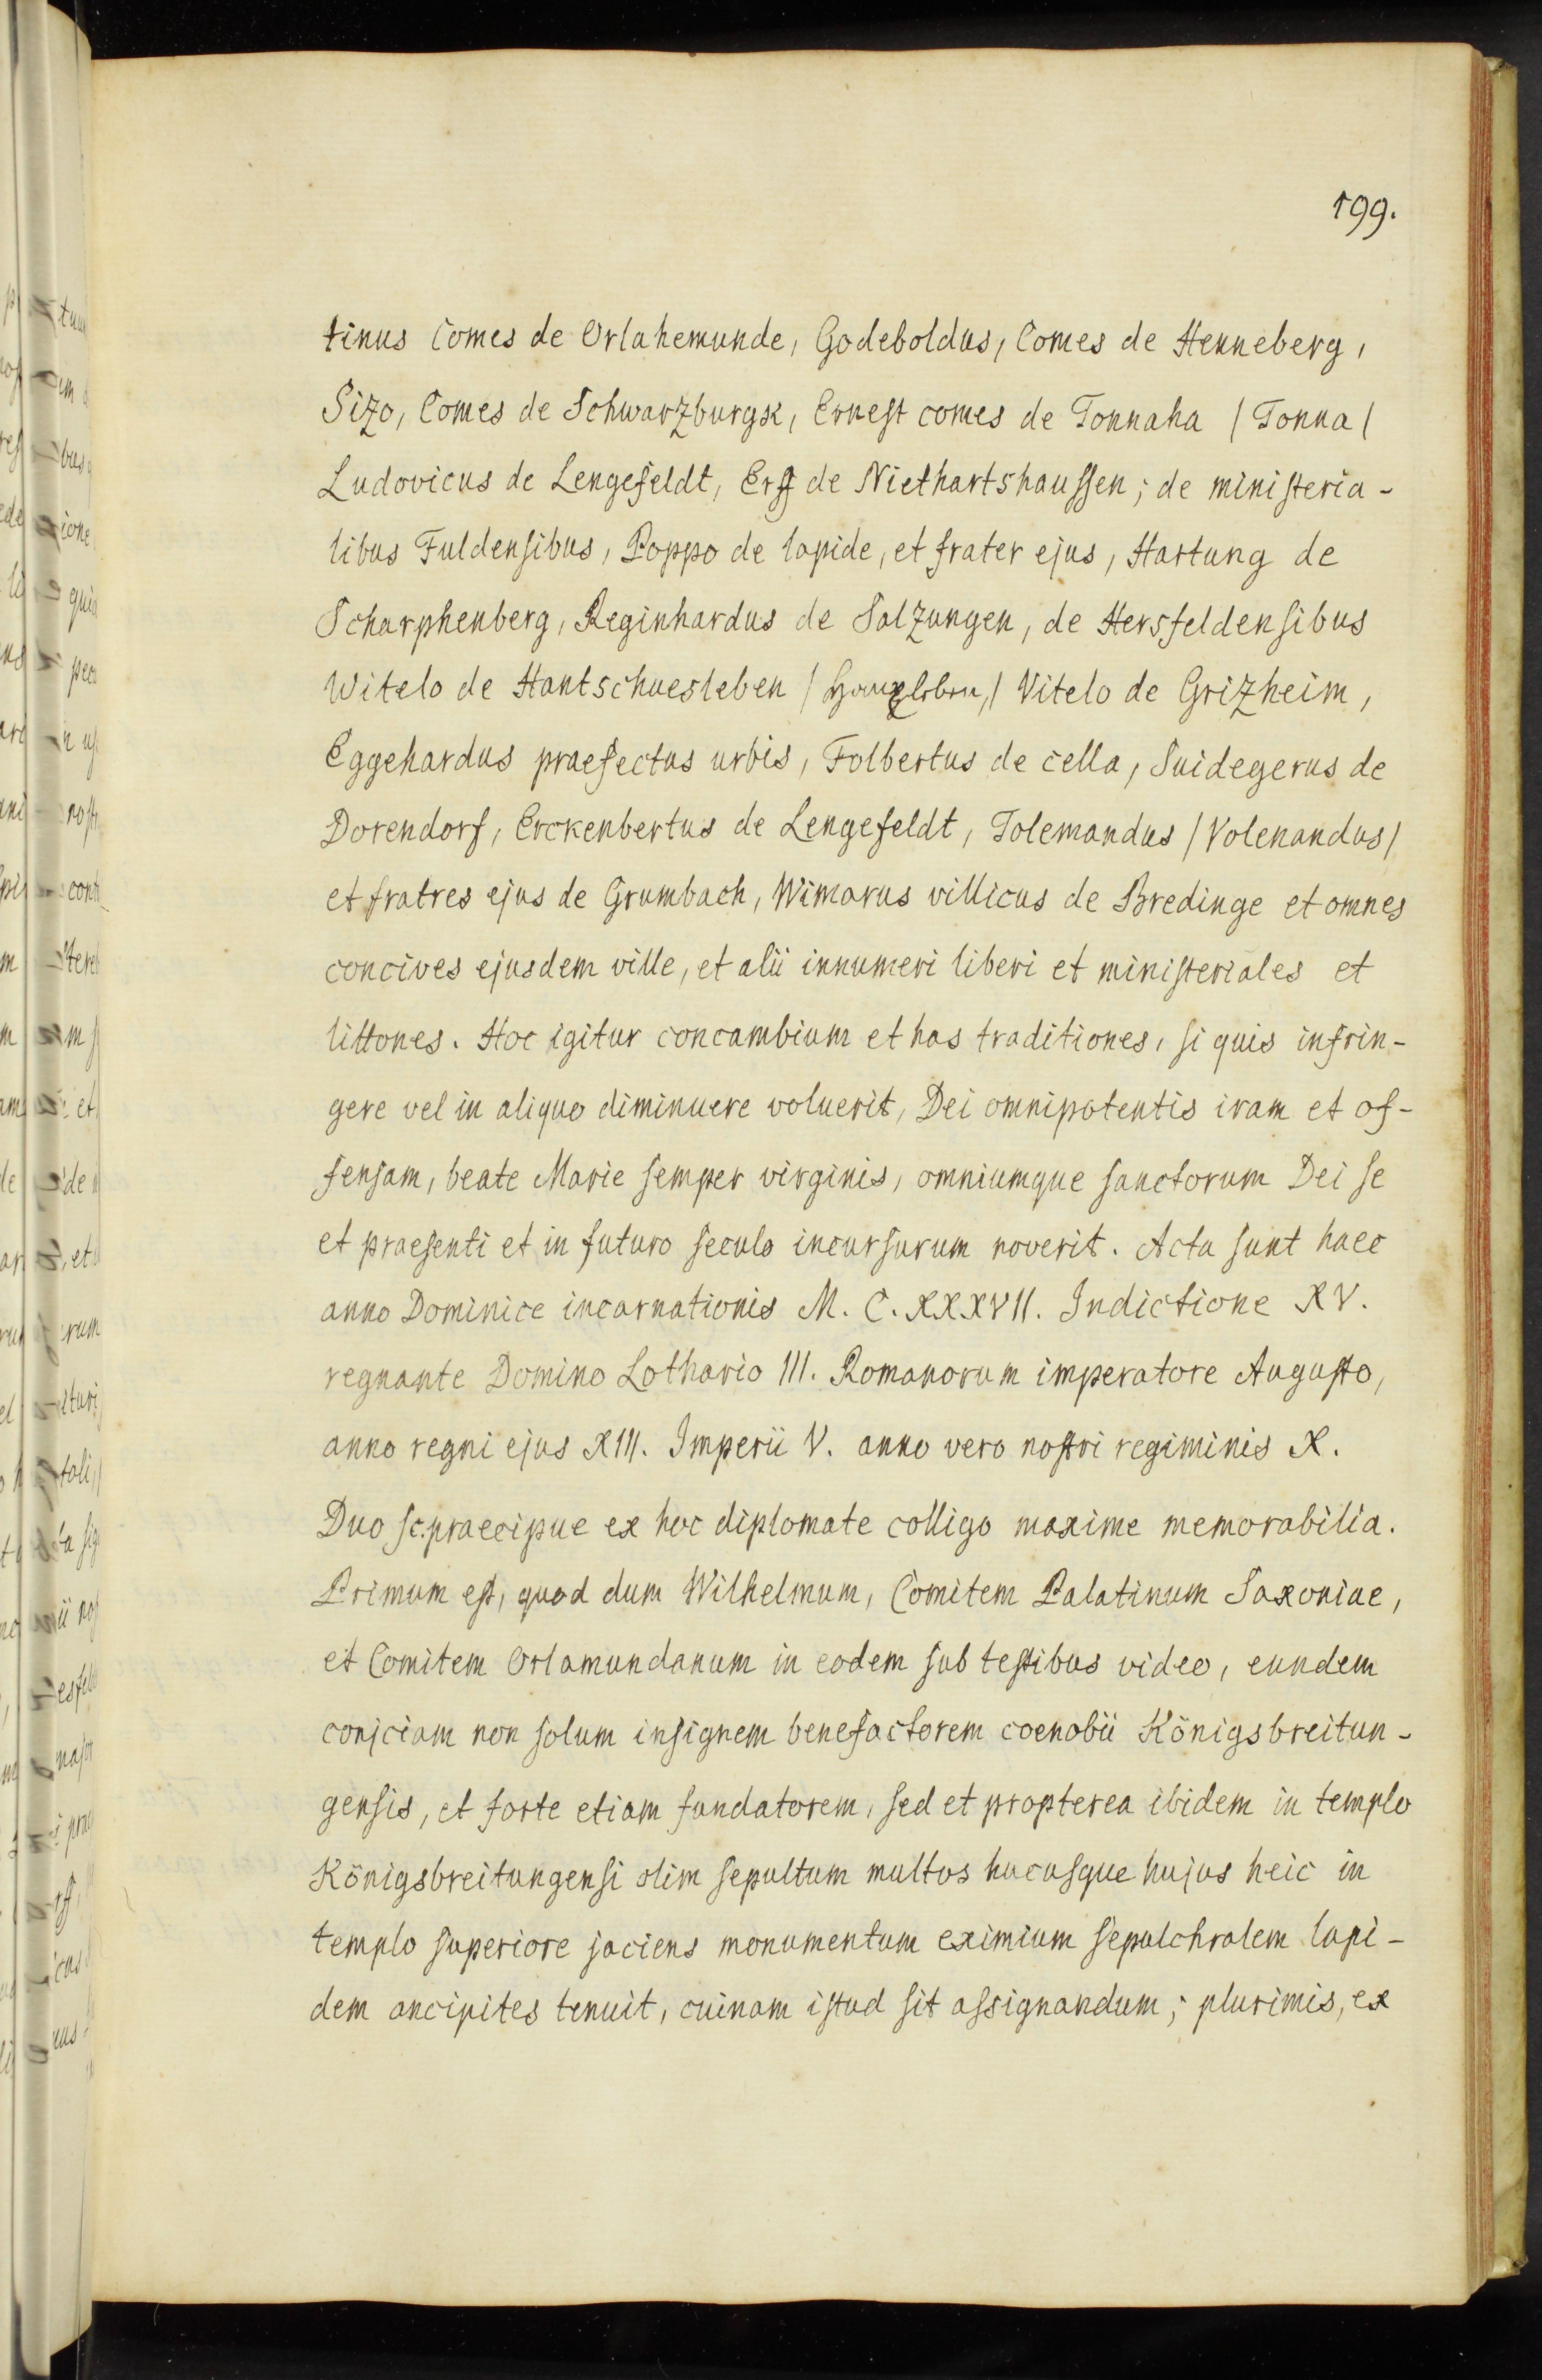 199.
tinus Comes de Orlahemunde, Godeboldus, Comes de Henneberg,
Sizo, Comes de Schwarzburgk, Ernest comes de Tonnaha / Tonna /
Ludovicus de Lengefeldt, Erff de Niethartshaussen; de ministeria-
libus Fuldensibus, Poppo de lapide, et frater ejus, Hartung de
Scharphenberg, Reginhardus de Salzungen, de Hersfeldensibus
Witelo de Hantschuesleben / / Vitelo de Grizheim,
Eggehardus praefectus urbis, Folbertus de cella, Suidegerus de
Dorendorf, Erckenbertus de Lengefeldt, Tolemandus / Volenandus /
et fratres ejus de Grumbach, Wimarus villicus de Bredinge et omnes
concives ejusdem ville, et alii innumeri liberi et ministeriales et
littones. Hoc igitur concambium et has traditiones, si quis infrin-
gere vel in aliquo diminuere voluerit, Dei omnipotentis iram et of-
fensam, beate Marie semper virginis, omniumque sanctorum Dei se
et praesenti et in futuro seculo incursurum noverit. Acta sunt haec
anno Dominice incarnationis M. C. XXXVII. Indictione XV.
regnante Domino Lothario III. Romanorum imperatore Augusto,
anno regni ejus XIII. Imperii V. anno vero nostri regiminis X.
Duo sc. praecipue ex hoc diplomate colligo maxime memorabilia.
Primum est, quod dum Wilhelmum, Comitem Palatinum Saxoniae,
et Comitem Orlamundanum in eodem sub testibus video, eundem
conjciam non solum insignem benefactorem coenobii Königsbreitun-
gensis, et forte etiam fundatorem, sed et propterea ibidem in templo
Königsbreitungensi olim sepultum multos hucusque hujus heic in
templo superiore jaciens monumentum eximium sepulchralem lapi-
dem ancipites tenuit, cuinam istud sit assignandum; plurimis, ex